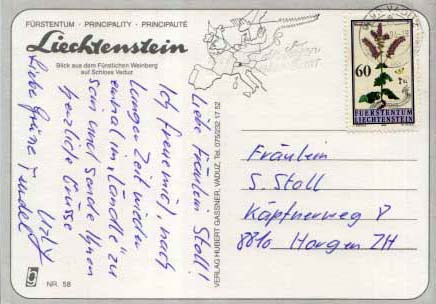 FÜRSTENTUM · PRINCIPALITY · PRINCIPAUTÉ
Liechtenstein
Blick aus dem Fürstlichen Weinberg
auf Schloss Vaduz
Liebe Fräulein Stoll!
Ich freue mich, nach
langer Zeit wieder
einmal im "Ländle" zu
sein und sende Ihnen
herzliche Grüsse
Liebe Grüsse
VERLAG HUBERT GASSNER, VADUZ, Tel. 075/232 17 52
NR. 58
60
FUERSTENTUM
LIECHTENSTEIN
Fräulein
S. Stoll
Käpfnerweg 8
8810 Horgen ZH